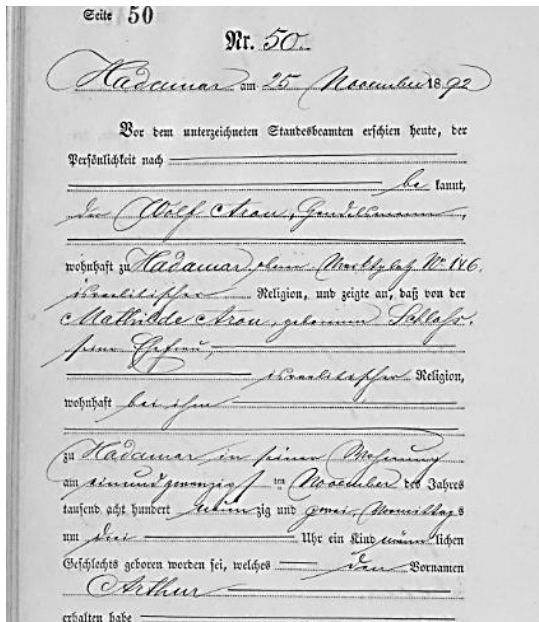 Seite 50
Nr. 50.
Hadamar am 25 November 1892
Vor dem unterzeichneten Standesbeamten erschien heute, der
Persönlichkeit nach
be kannt,
der Wolf Aron, Handelsmann,
wohnhaft zu Hadamar, Marktplatz No 146,
israelitischer Religion, und zeigte an, daß von der
Mathilde Aron, geborenen Schloß,
seine Ehefrau,
israelitischer Religion,
wohnhaft bei ihm
zu Hadamar in seiner Wohnung
am einundzwanzigsten November des Jahres
tausend acht hundert neun zig und zwei, Vormittags
um drei Uhr ein Kind männ lichen
Geschlechts geboren worden sei, welches den Vornamen
Arthur
erhalten habe